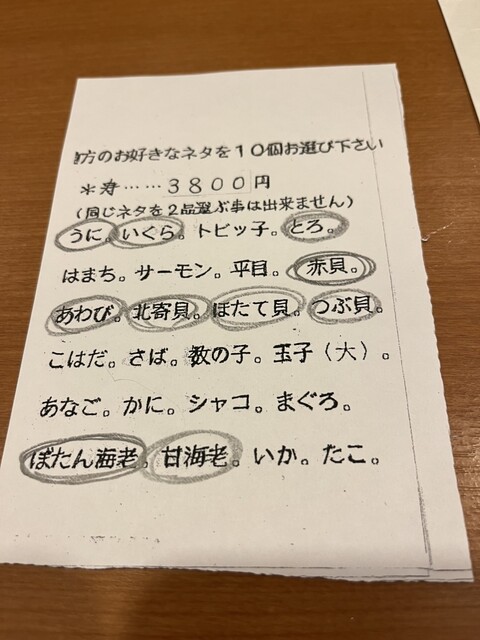 方のお好きなネタを10個お選び下さい
*寿……3800円
(同じネタを2品選ぶ事は出来ません)
うに。いくら。トビッ子。とろ。
はまち。サーモン。平目。赤貝。
あわび。北寄貝。ほたて貝。つぶ貝。
こはだ。さば。数の子。玉子(大)。
あなご。かに。シャコ。まぐろ。
ぼたん海老。甘海老。いか。たこ。